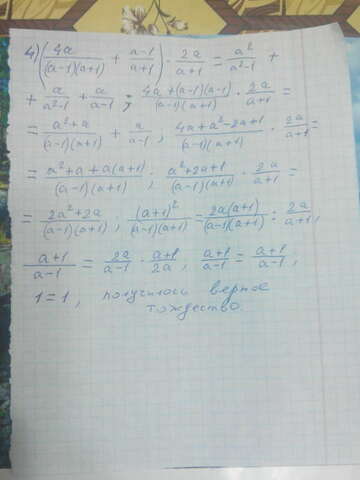 4) (4a/((a-1)(a+1)) + (a-1)/(a+1)) · 2a/(a+1) = a²/(a²-1) +
+ a/(a²-1) + a/(a-1) ; (4a+(a-1)(a-1))/((a-1)(a+1)) · 2a/(a+1) =
= (a²+a)/((a-1)(a+1)) + a/(a-1) , (4a+a²-2a+1)/((a-1)(a+1)) · 2a/(a+1) =
= (a²+a+a(a+1))/((a-1)(a+1)) ; (a²+2a+1)/((a-1)(a+1)) · 2a/(a+1) =
= (2a²+2a)/((a-1)(a+1)) ; (a+1)²/((a-1)(a+1)) = 2a(a+1)/((a-1)(a+1)) : 2a/(a+1) ,
(a+1)/(a-1) = 2a/(a-1) · (a+1)/2a , (a+1)/(a-1) = (a+1)/(a-1) ,
1=1 , получилось верное
тождество.